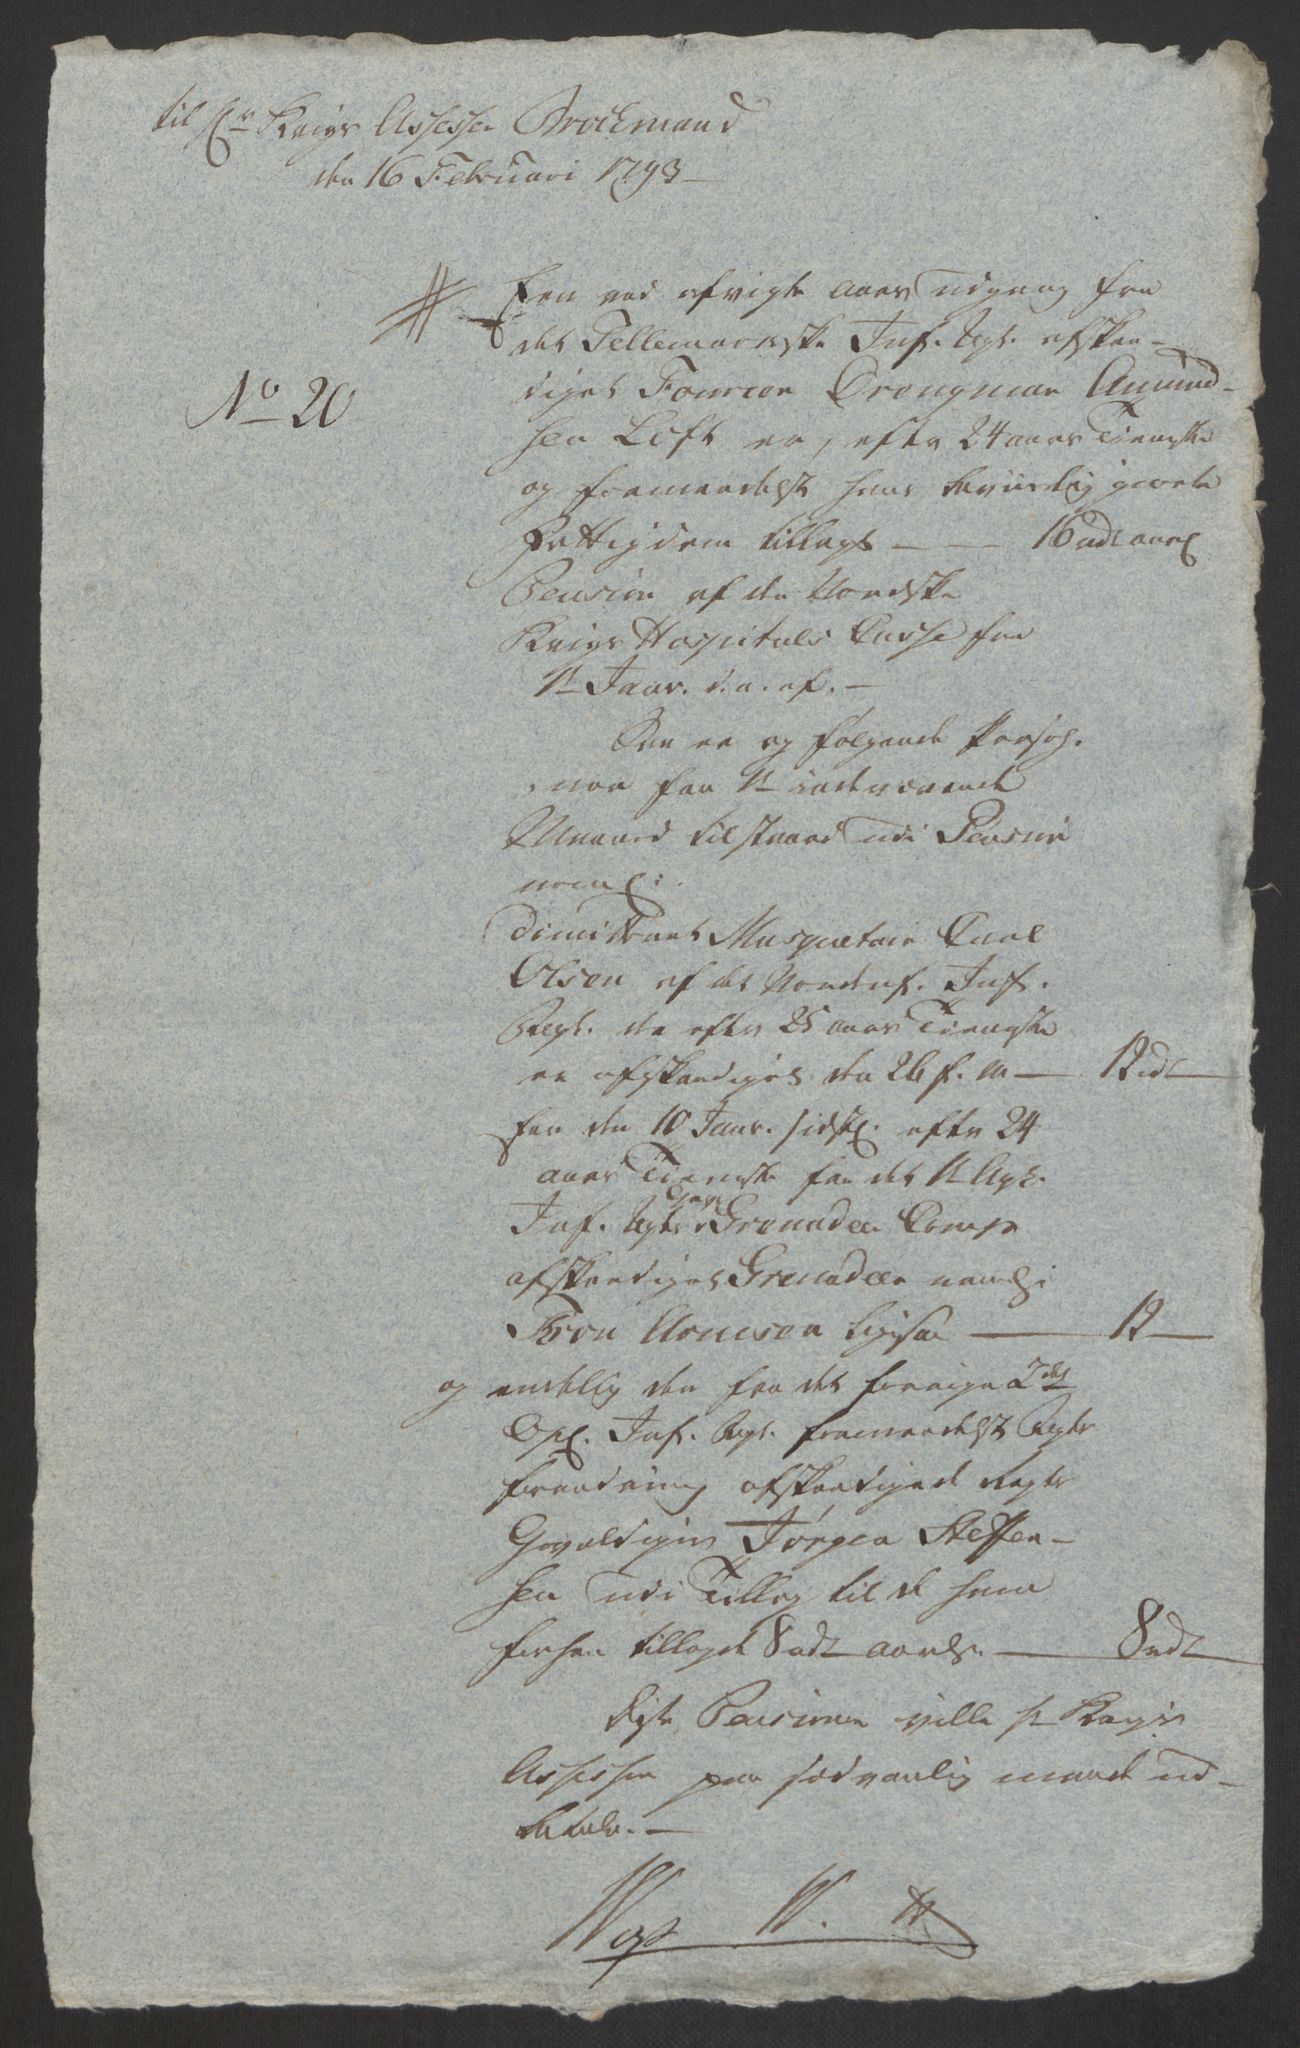 til Hr Krigs Assessor Brochmand
den 16 Februari 1793 —
Den ved afvigte aars udgang fra
det Tellemarkske Inf. Regt. afske-
No 20
digede Fourer Drongman Amund-
sen Loft er, efter 24 aars Tieneste
og formedelst hans beviislig giorte
Rettigdom tillagt — — 16 rdr aarl
Pension af den Nordske
Krigs Hospitals Casse fra
1t Janr. d. a. af. —
Den er og følgende Perso-
ner fra 1t indeværende
Maaned tilstaaed udi Pension
neml:
dimitteret Musqueteer Carl
Olsen af det Nordenf. Inf.
Regt. der efter 25 aars Tieneste
er afskediget den 26 f. M — 12 rdr
Den den 10 Janr. sidstl. efter 24
aars Tieneste fra det 1t Ag:
Inf. Regts Grenadeer Comp
afskediget Grenadeer navnl:
Tron Arnesen ligesaa — 12 —
og endelig den fra det forrige 2det
Opl. Inf. Regt. formedelst Regts
forandring afskedigede Regts
Gevaldiger Jørgen Steffen-
sen udi Tillæg til de ham
forhen tillagde 8 rdr aarl. — 8 rdr
disse Pensioner ville Hr Krigs
Assessor paa sædvanlig maade ud-
betale. —